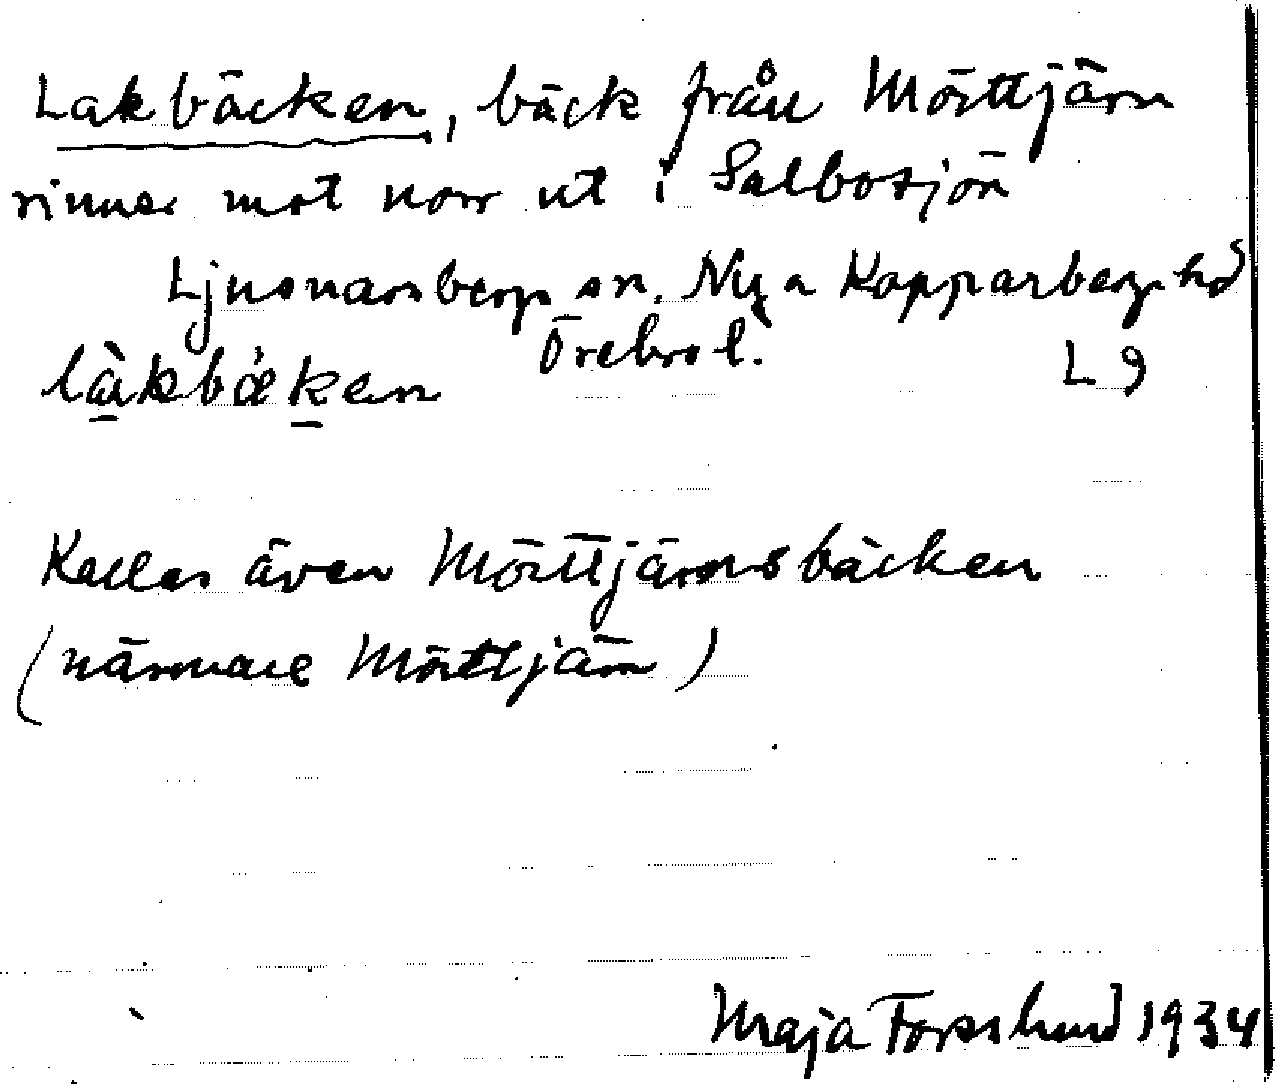 Lakbäcken, bäck från Mörttjärn
rinner mot norr ut i Salbosjön
Ljusnarsbergs sn. Nya Kopparbergs hd
Örebro l.
làkbäken L 9
Kallas även Mörttjärnsbäcken
(närmare Mörttjärn)
Maja Forsslund 1934